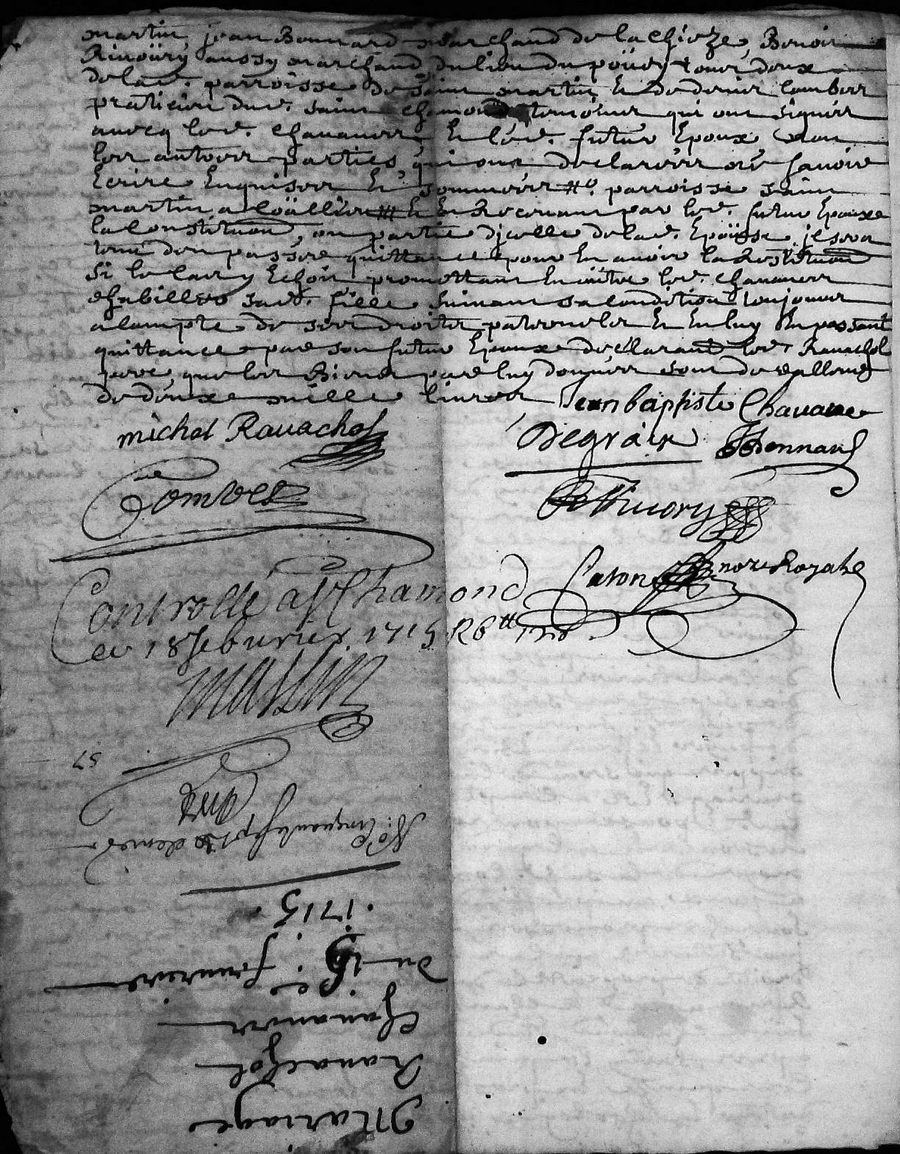 martin jean Bonnard marchand de la Chieze Benoit
aussy marchand du lieu du tous deux
de lad. parroisse de Saint martin et
praticien dud. Saint Chamond temoins qui ont signes
avecq led. Chavanes et led. futur Epoux non
les autres parties qui ont declarés ne scavoir
Ecrire Enquises et sommées parroisse Saint
martin a et En Recevant par led. futur Epoux
la Constitution ou partie d'jcelle de lad. Epouse jl sera
tenu d'en passer quittance pour En avoir la Restitution
si le cas y Echoit promettant En outre led. Chavanes
d'habiller sad. fille suivant sa Condition toujours
a Compte de ses droits paternels Et En luy En passant
quittance par son futur Epoux declarant led. Ravachol
pere que les Biens par luy donnés sont de valleur
de deux mille livres Jean baptiste Chavane
michel Ravachol Degraix Bonnard
Combes
Caton no.re Royal
Controllé a St Chamond
ce 18 feburier 1715
massin
57
No. Cinquante sept
1715
Du 15e fevrier
Chavanes
Ravachol
Mariage